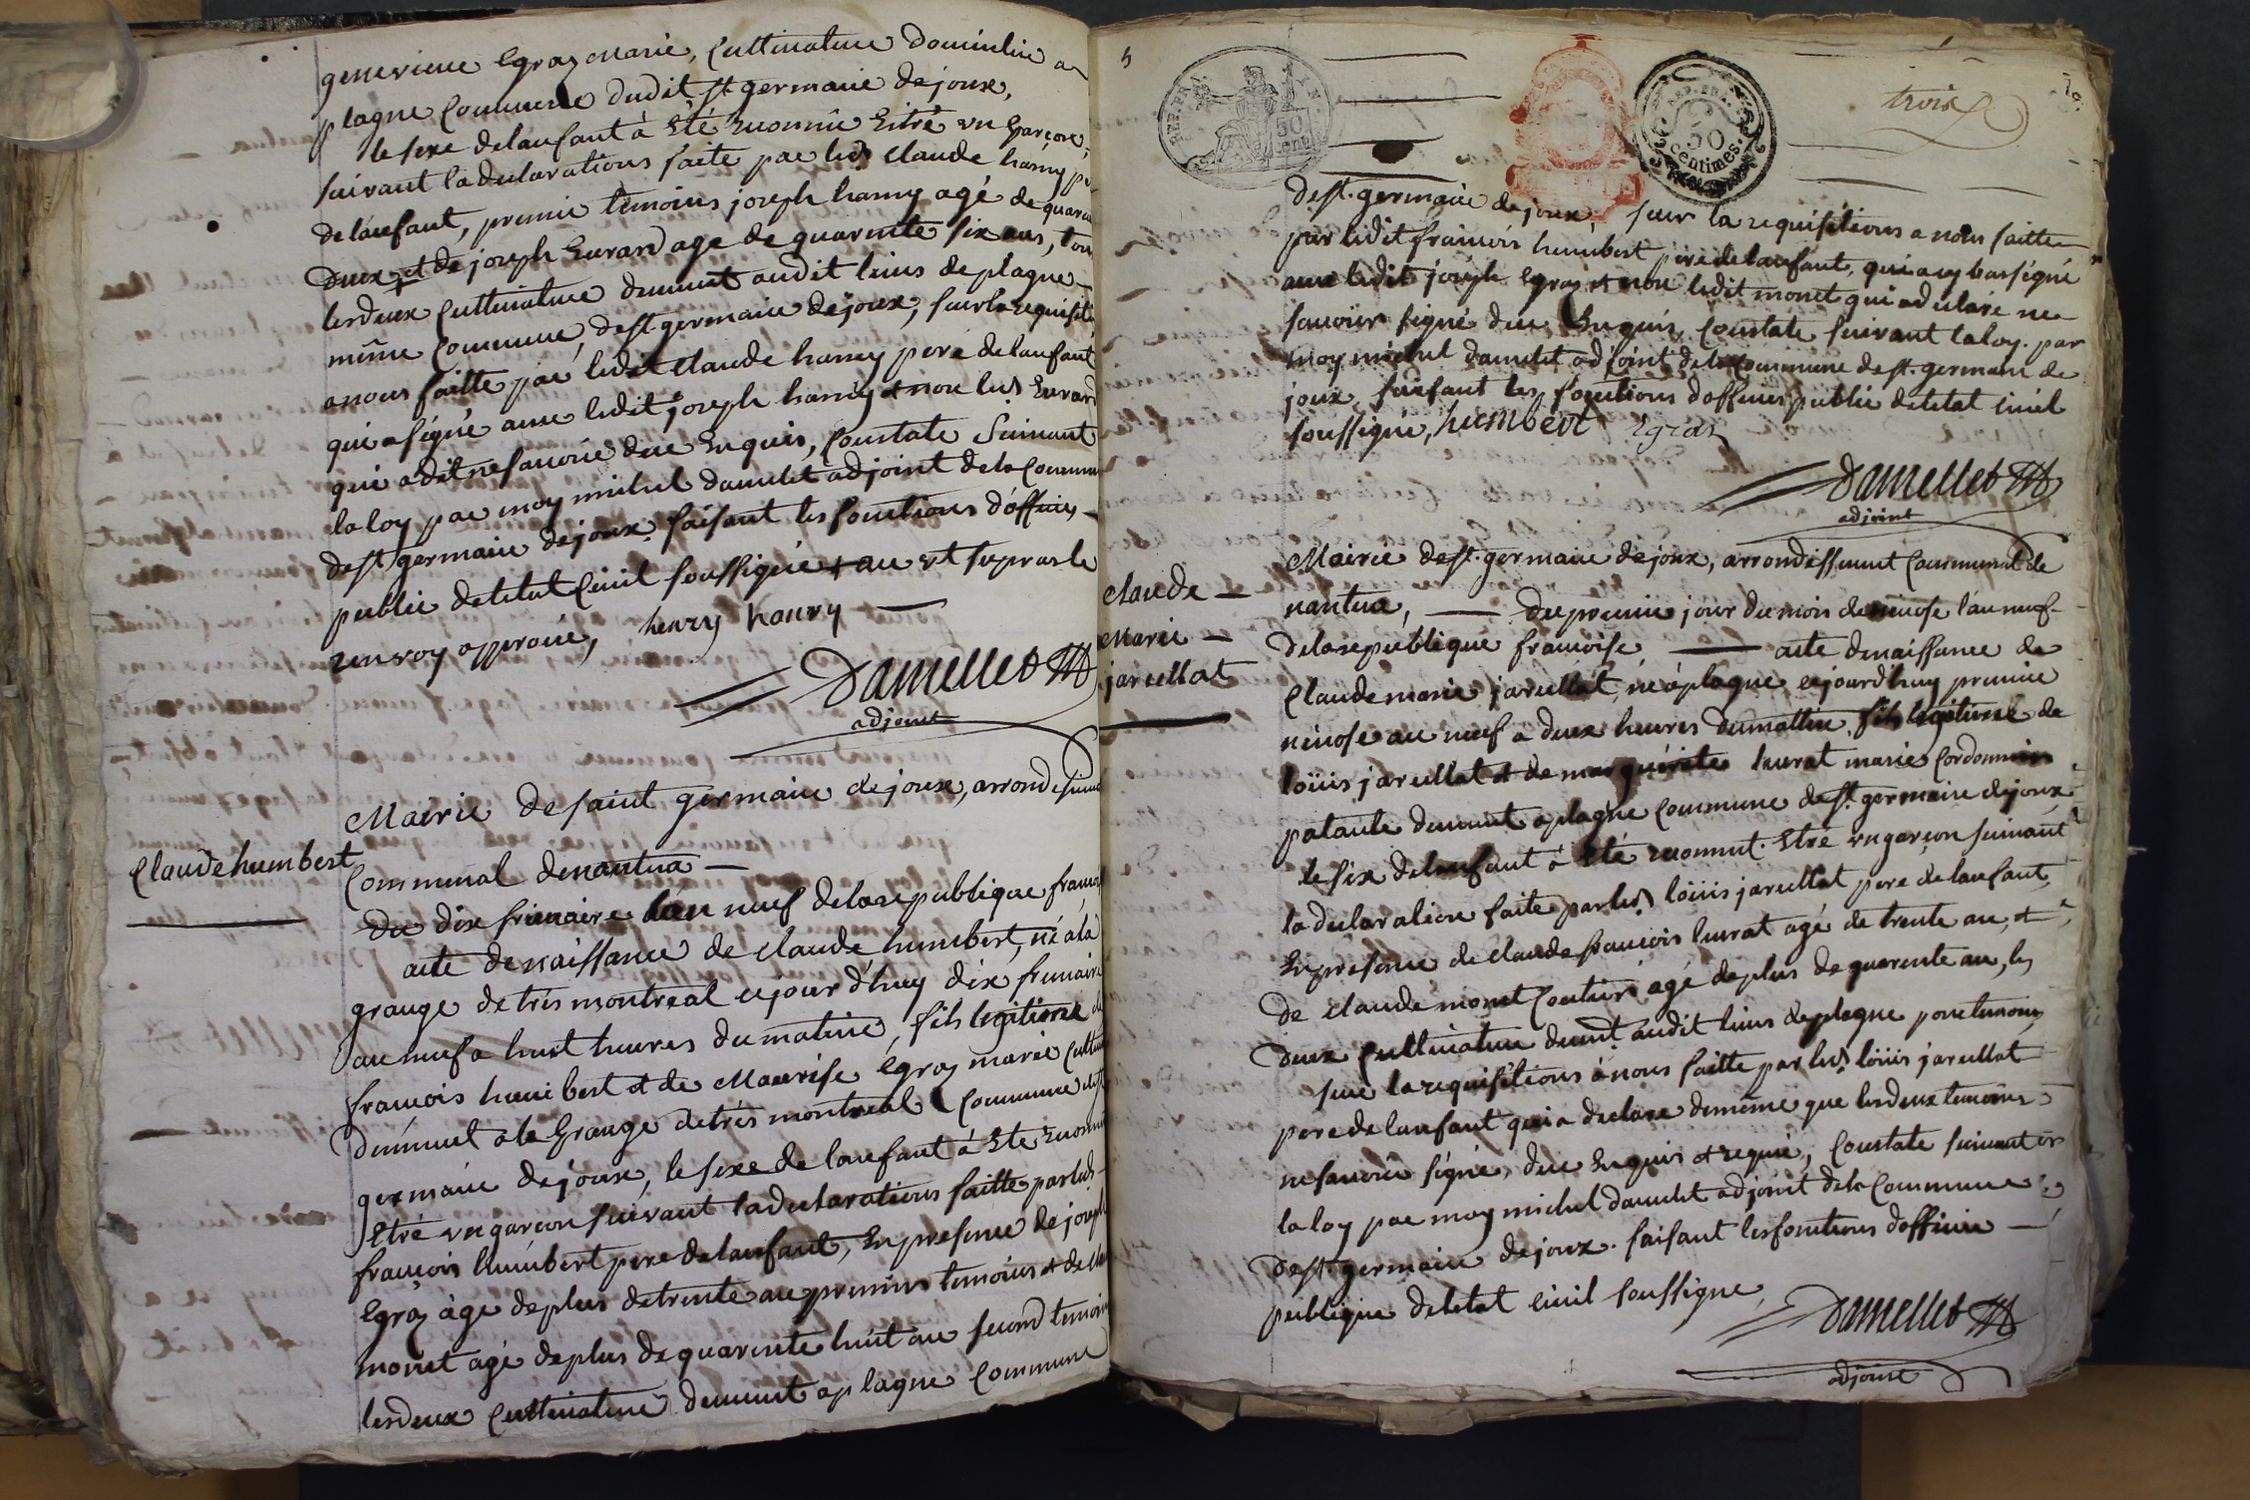 genevieve Egraz marie, Cultivateur domicilié a
plagne Commune dudit st germain dejoux,
le sexe delanfant à été reconnû Estre un garçon,
suivant la declarations faite par led claude hanry pe
delanfant, premie temoins joseph hanry agé de quara
deux et de joseph Evrard age de quarente six ans, tous
lesdeux Cultivateur demeurt audit lieus de plagne
même Commune, dest germain dejoux, sur la requisiti
anous faitte par ledit claude hanry pere delanfant
qui a signé avec ledit joseph hanry & non led Evrard
qui a dit ne savoir de ce Enquis, Constate Suivant
la loy par moy michel damelet adjoint dela Commune
dest germain dejoux faisant les fonctions d'officies
public deletat Civil soussigné
renvoy approuvé, henry hanry
Damellet
adjoint
Mairie de saint germain dejoux, arrondissement
Claude humbert
Communal denantua
Du dix frimaire l'an neuf delarepublique francois
acte denaissance de claude humbert, né ala
grange de trés montreal cejourd'huy dix frimaire
au neuf a huit heures dumatin, fils legitime de
francois humbert et de Maurise Egraz marié Cultiv
demeurt ala Grange detrés montreal Commune dest
germain dejoux, le sexe de lanfant à Ete reconnu
Etre ungarcon suivant la declarations faitte par led
françois humbert pere delanfant, En presence de joseph
Egraz âgé deplus de trente an premier temoins et de
monet agé deplus de quarente huit an second temoin
lesdeux Cultivateur demeurt a plagne Commune
5
REP. FRA.
50
cent
REP. FRA.
50
centimes
trois
dest. germain dejoux, sur la requisitions a nous faitte
par ledit francois humbert pere delanfant, qui acy bas signé
avec ledit joseph Egraz et non ledit monet qui adeclare ne
savoir signé de ce Enquis, Constate suivant laloy. par
moy michel damelet adjoint dela Commune dest. germain de
joux, faisant les fonctions dofficies public deletat civil
soussigné, humbert Egraz
Damellet
adjoint
Mairie dest. germain dejoux, arrondissement Communal de
claude
marie
jarcellat
nantua, Du premie jour dumois de nivose l'an neuf
delarepublique francoise acte denaissance de
Claude marie jarcellat, né aplagne cejourdhuy premie
nivose an neuf a deux heures dumattin, fils legitime de
loüis jarcellat et de marguerite hurat marié Cordonnier
patante demeurt a plagne Commune dest. germain dejoux
le sexe delanfant à Eté reconnut. Etre ungarçon suivant
la declaration faite par led loüis jarcellat pere delanfant,
En presence de claude francois hurat agé de trente an, et
de claude monet Coutier agé deplus de quarente an, les
deux Cultivateur demeurt audit lieus deplagne pour temoins
sur la requisitions ànous faitte par led loüis jarcellat
pere de lanfant qui a declare demême que lesdeux temoins
ne savoir signé, de ce Enquis et requis, Constate suivant
la loy par moy michel damelet adjoint dela Commune
dest. germain dejoux. faisant les fonctions dofficie
publique deletat civil soussigne,
Damellet
adjoint